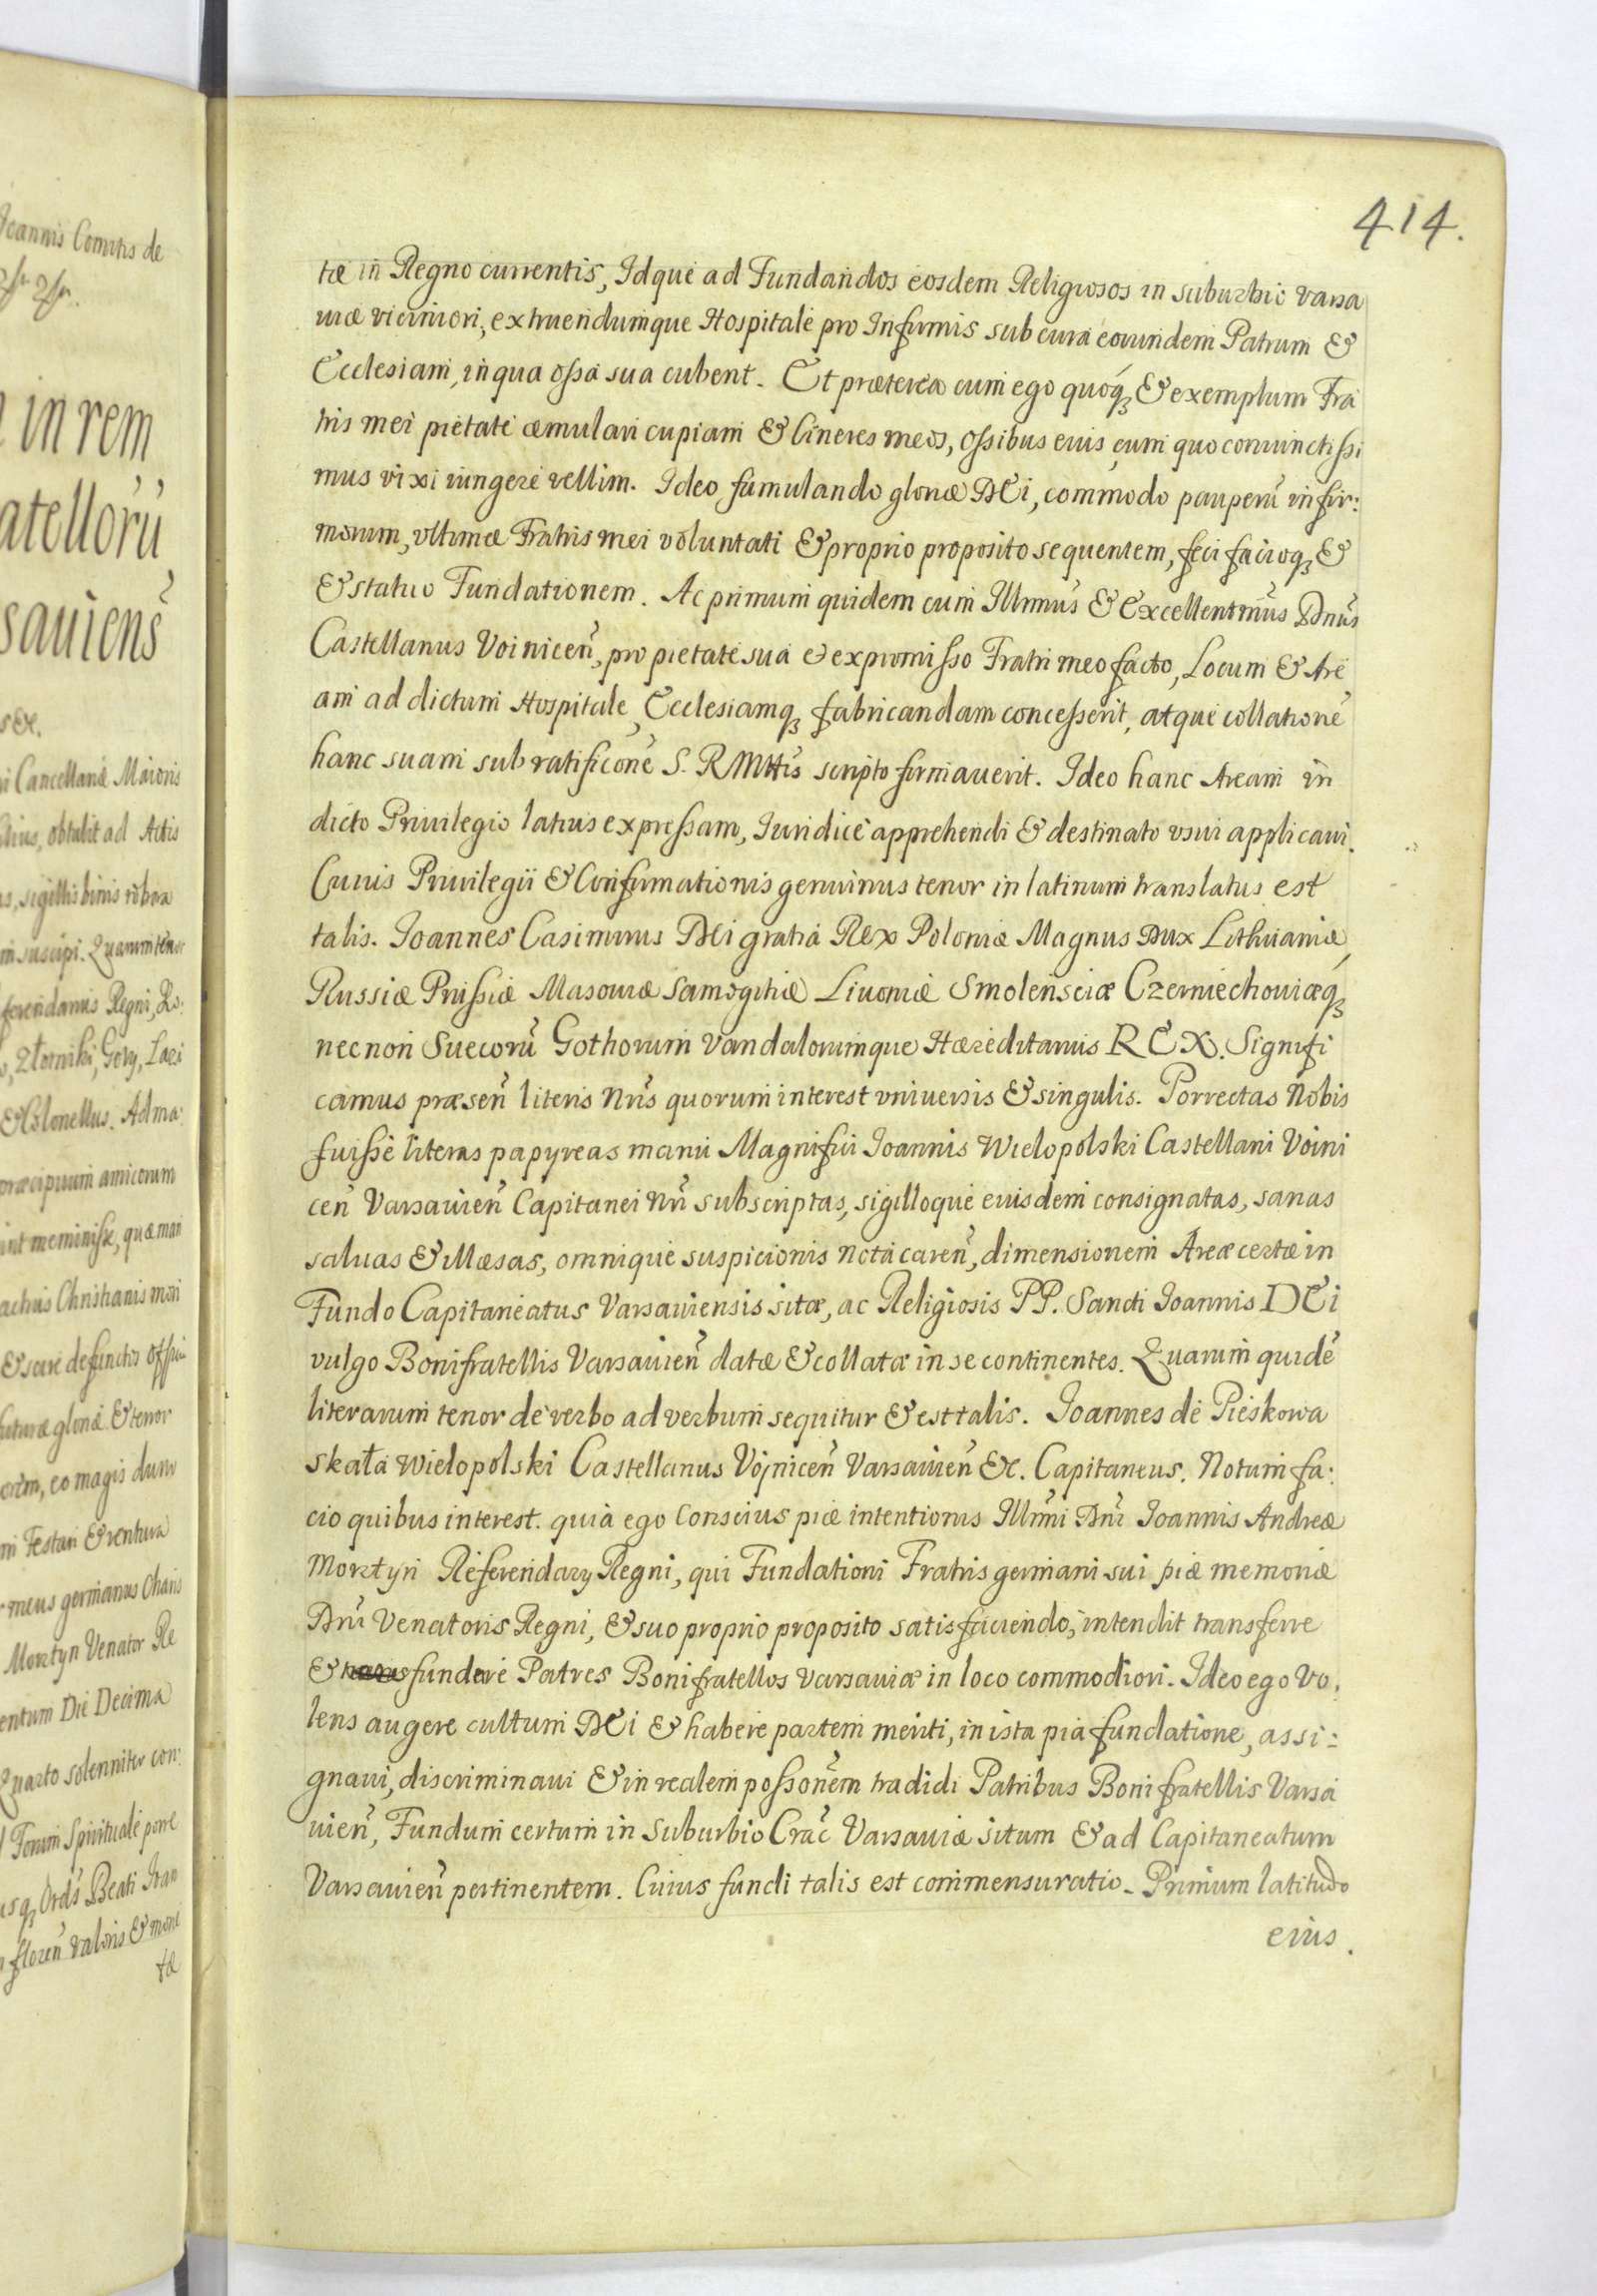 Joannis Comitis de
in rem
atellorũ
sauiens̃
s &c.
ni Cancellariæ Maioris
obtulit ad Actis
sigillis binis robora
m suscipi. Quarum tenor
ferendarius Regni,
Złotniki, Gory,
& Colonellus. Ad ma:
præcipuum amicorum
int meminisse, quæ mari
Christianis mori
defunctis
gloriæ & tenor
eo magis dum
ni Testari & ventura
meus germanus Charis
Morztyn Venator Re
entum Die Decima
Quarto solenniter con:
Forum Spirituale porre
usq; Ordĩs Beati Ioan
floren̄ valoris & mone
tæ
414.
tæ in Regno currentis, Idque ad Fundandos eosdem Religiosos in suburbio Varsa
uiæ viciniori, extruendumque Hospitale pro Infirmis sub cura eorundem Patrum &
Ecclesiam, in qua ossa sua cubent. Et præterea cum ego quoq; & exemplum Fra
tris mei pietate æmulari cupiam & Cineres meos, ossibus eius, cum quo coniunctissi
mus vixi iungere vellim. Ideo famulando gloriæ DEi, commodo pauperũ infir:
morum, vltimæ Fratris mei voluntati & proprio proposito sequentem, feci facioq; &
& statuo Fundationem. Ac primum quidem cum Illmus & Excellentmus Dnus
Castellanus Voinicen̄, pro pietate sua & ex promisso Fratri meo facto, Locum & Are
am ad dictum Hospitale, Ecclesiamq; fabricandam concesserit, atque collationẽ
hanc suam sub ratificone S. RMttis scripto firmauerit. Ideo hanc Aream in
dicto Priuilegio latius expressam, Iuridice apprehendi & destinato vsui applicaui.
Cuius Priuilegii & Confirmationis genuinus tenor in latinum translatus est
talis. Joannes Casimirus DEi gratia Rex Poloniæ Magnus Dux Lithuaniæ,
Russiæ Prussiæ Masouiæ Samogitiæ Livoniæ Smolensciæ Czerniechouiæq;
necnon Suecorũ Gothorum Vandalorumque Hæreditarius REX. Signifi
camus præsen̄ literis Nr̃is quorum interest vniuersis & singulis. Porrectas Nobis
fuisse literas papyreas manu Magnifici Joannis Wielopolski Castellani Voini
cen̄ Varsauien̄ Capitanei Nr̃i subscriptas, sigilloque eiusdem consignatas, sanas
saluas & illæsas, omnique suspicionis nota caren̄, dimensionem Areæ certæ in
Fundo Capitaneatus Varsauiensis sitæ, ac Religiosis PP. Sancti Joannis DEi
vulgo Bonifratellis Varsauien̄ datæ & collatæ in se continentes. Quarum quidẽ
literarum tenor de verbo ad verbum sequitur & est talis. Joannes de Pieskowa
skała Wielopolski Castellanus Vojnicen̄ Varsauien̄ &c. Capitaneus. Notum fa:
cio quibus interest. quia ego Conscius piæ intentionis Illmi Dni Joannis Andreæ
Morztyn Referendary Regni, qui Fundationi Fratris germani sui piæ memoriæ
Dni Venatoris Regni, & suo proprio proposito satisfaciendo, intendit transferre
& fundare Patres Bonifratellos Varsauiæ in loco commodiori. Ideo ego Vo,
lens augere cultum DEi & habere partem meriti, in ista pia fundatione, assi:
gnaui, discriminaui & in realem possonem tradidi Patribus Bonifratellis Varsa
uien̄, Fundum certum in Suburbio Crac̃ Varsauiæ situm & ad Capitaneatum
Varsauien̄ pertinentem. Cuius fundi talis est commensuratio. Primum latitudo
eius.